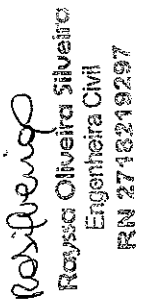 Rayssa Oliveira Silveira
Engenheira Civil
RN 2718219297